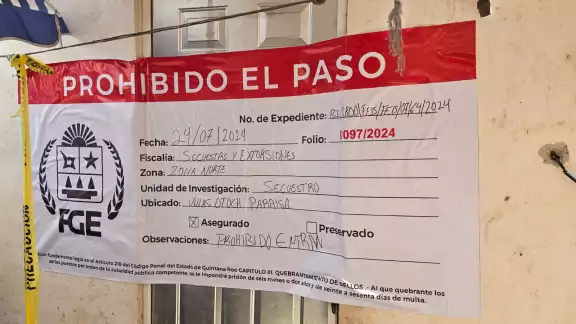 PROHIBIDO EL PASO
No. de Expediente:
Fecha: 24/07/2024 Folio: 1097/2024
Fiscalía: SECUESTRO Y EXTORSIONES
Zona: ZONA NORTE
Unidad de Investigación: SECUESTRO
Ubicado: VILLAS OTOCH PARAISO
Asegurado Preservado
Observaciones: PROHIBIDO ENTRAR
FGE
Con fundamento legal en el Artículo 218 del Código Penal del Estado de Quintana Roo CAPITULO III. QUEBRANTAMIENTO DE SELLOS .- Al que quebrante los
sellos puestos por orden de la autoridad pública competente, se le impondrá prisión de seis meses a dos años y de veinte a sesenta días de multa.
PRECAUCION